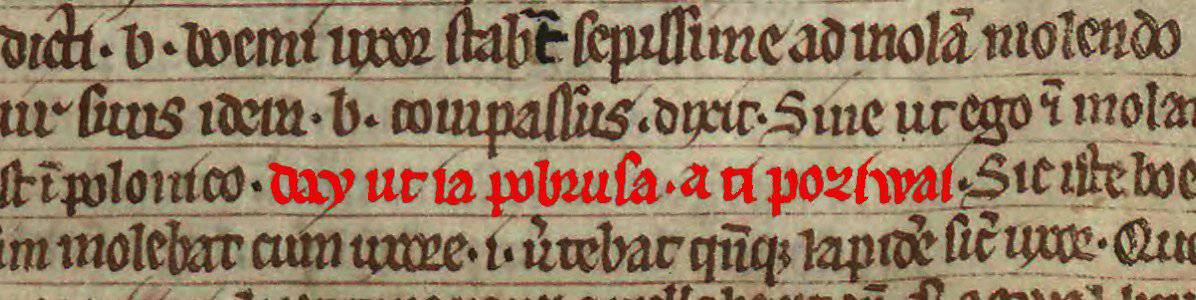 dicti · b · boemi uxor stabat̄ sepissime ad molā molendo
uir suus idem · b · compassus · dixit · Sine ut ego ī molar
st ī polonico · day ut ia pobrusa · a ti poziwai · Sic iste boe
im molebat cum uxore · i · ūtebat qn̄q; lapidē sic̄ uxor · Quo